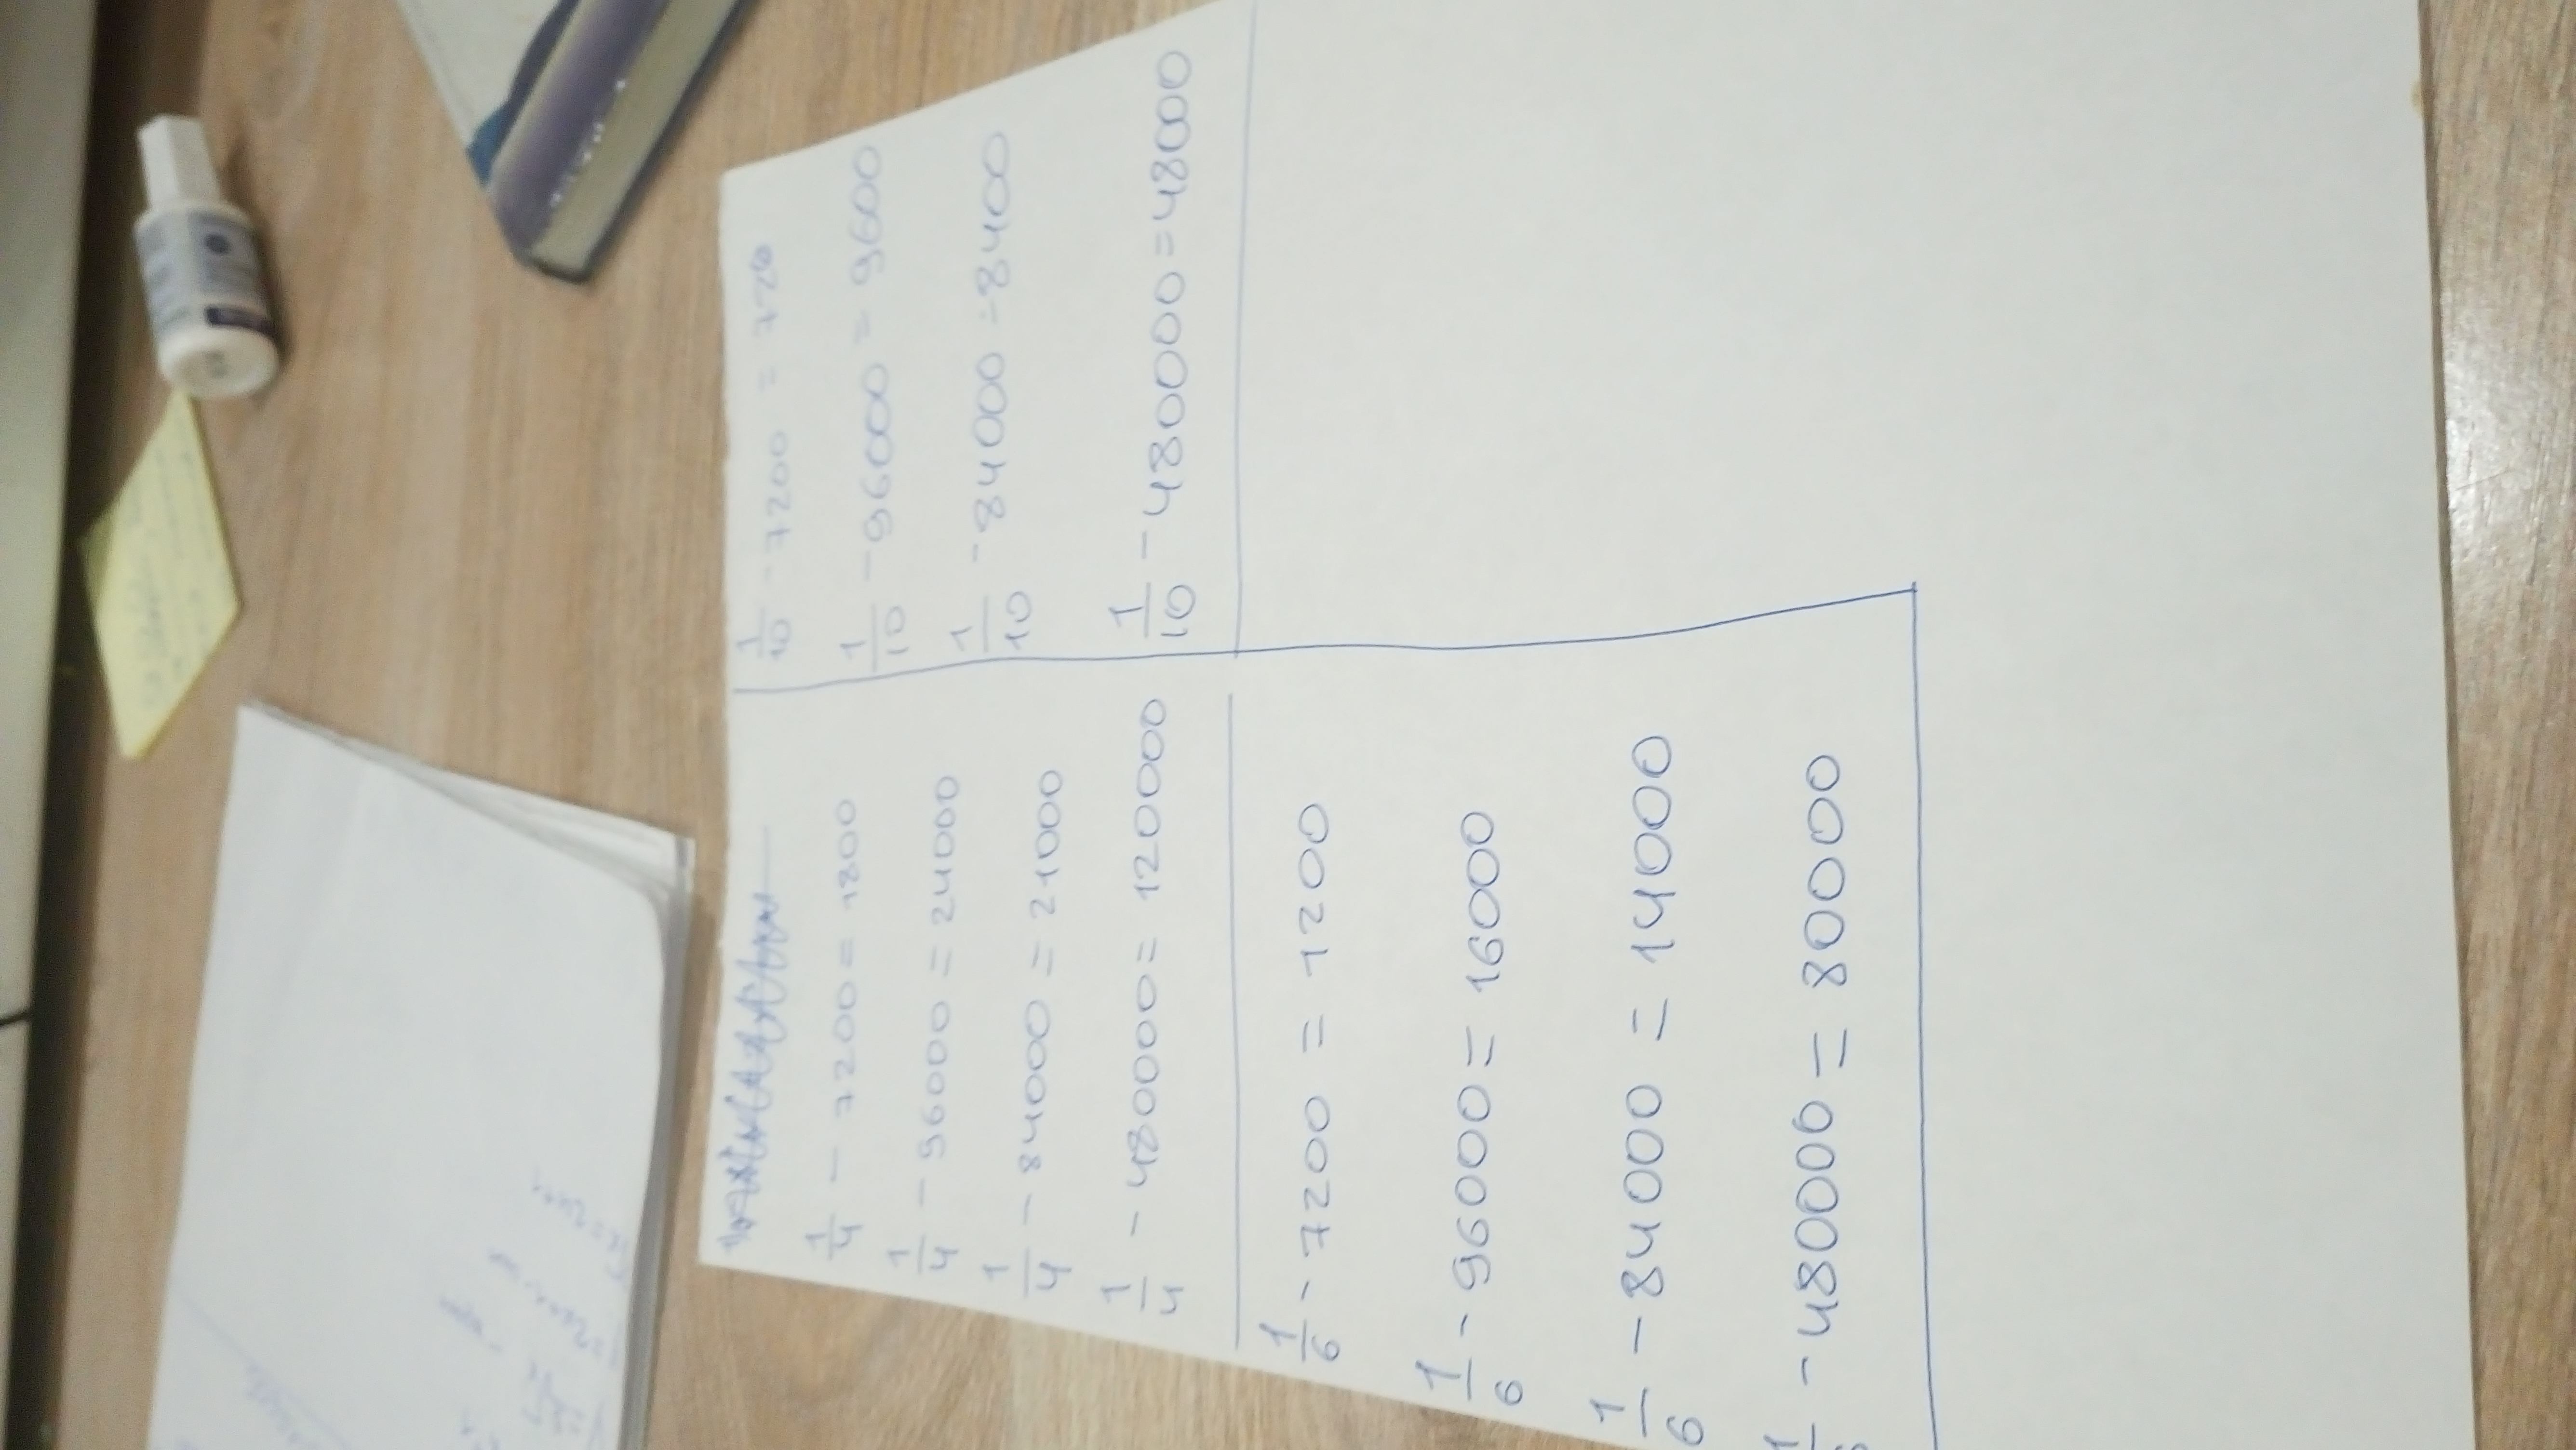 1/4 - 7200 = 1800
1/4 - 96000 = 24000
1/4 - 84000 = 21000
1/4 - 480000 = 120000
1/6 - 7200 = 1200
1/6 - 96000 = 16000
1/6 - 84000 = 14000
1/6 - 480000 = 80000
1/10 - 7200 = 720
1/10 - 96000 = 9600
1/10 - 84000 = 8400
1/10 - 480000 = 48000